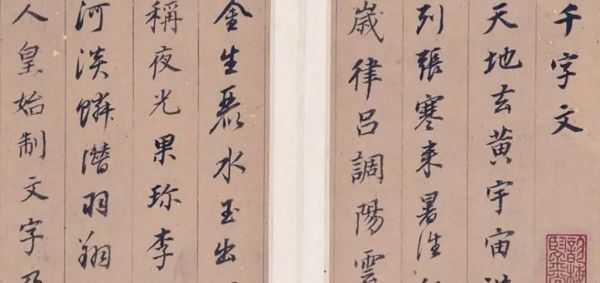 千字文
天地玄黃宇宙
列張寒来暑往
歲律呂調陽雲
金生麗水玉出
稱夜光果珍李
河淡鱗潛羽翔
人皇始制文字乃